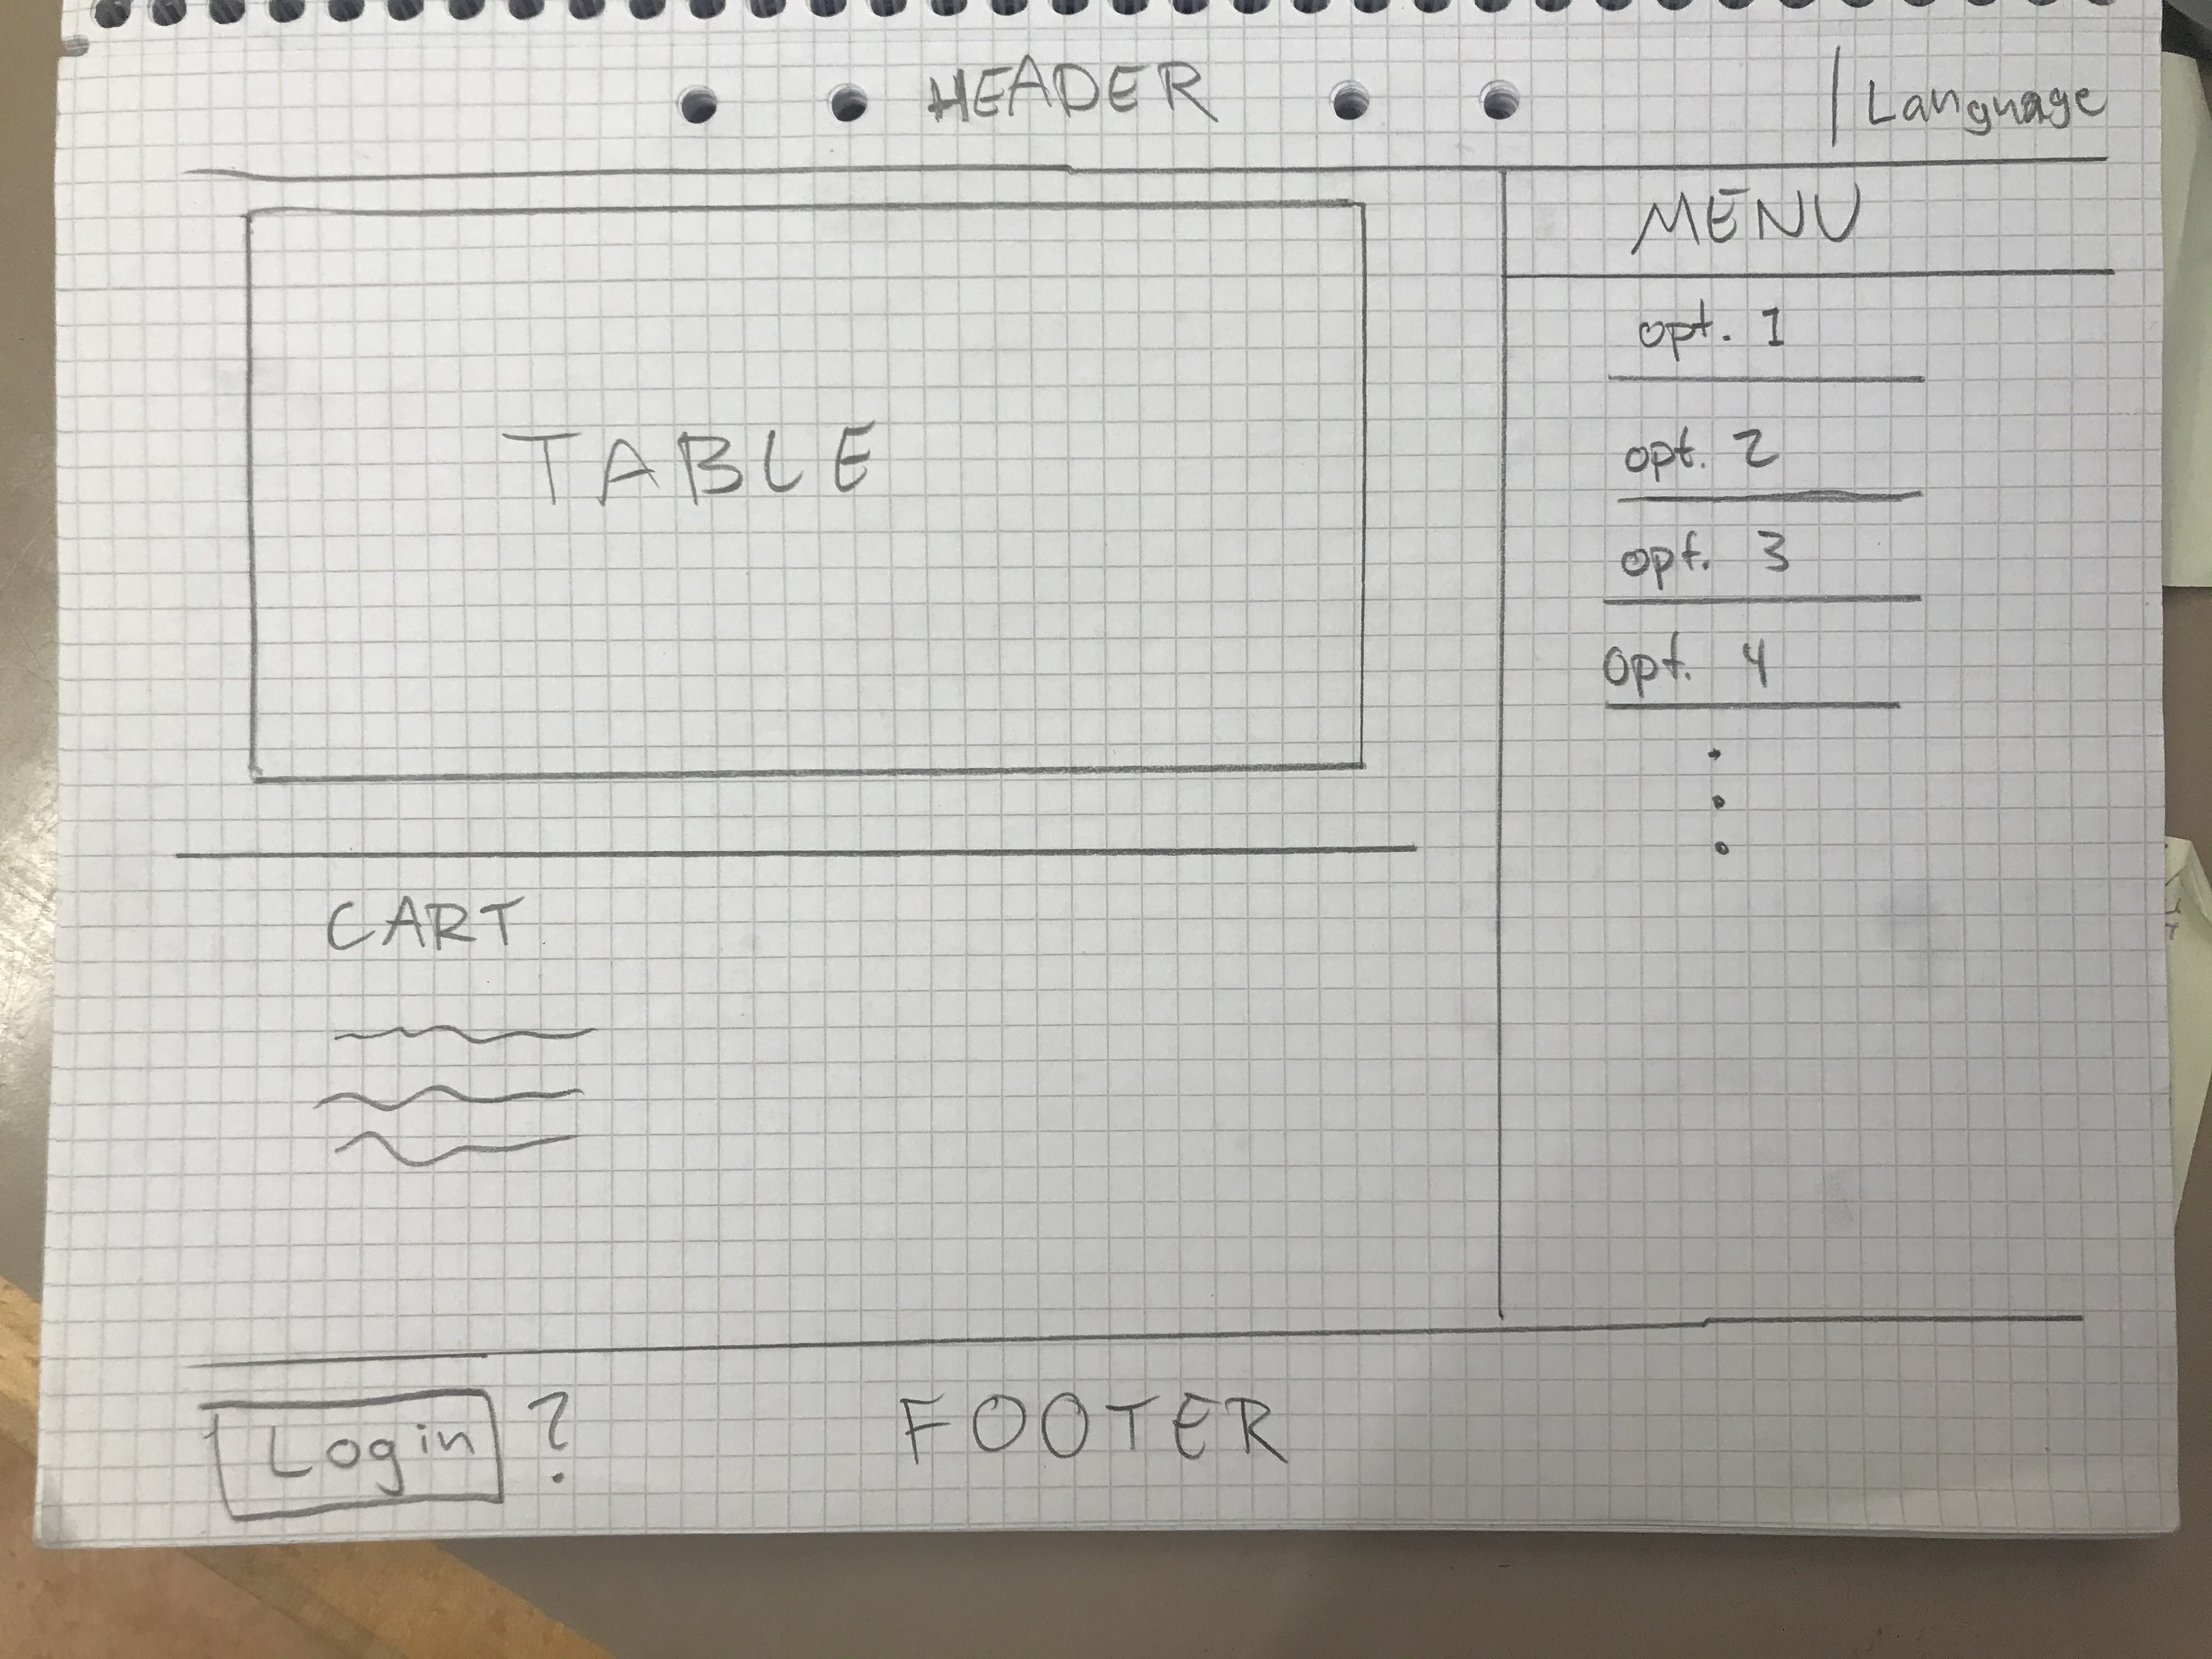 HEADER
Language
MENU
opt. 1
opt. 2
opt. 3
opt. 4
TABLE
CART
Login ?
FOOTER